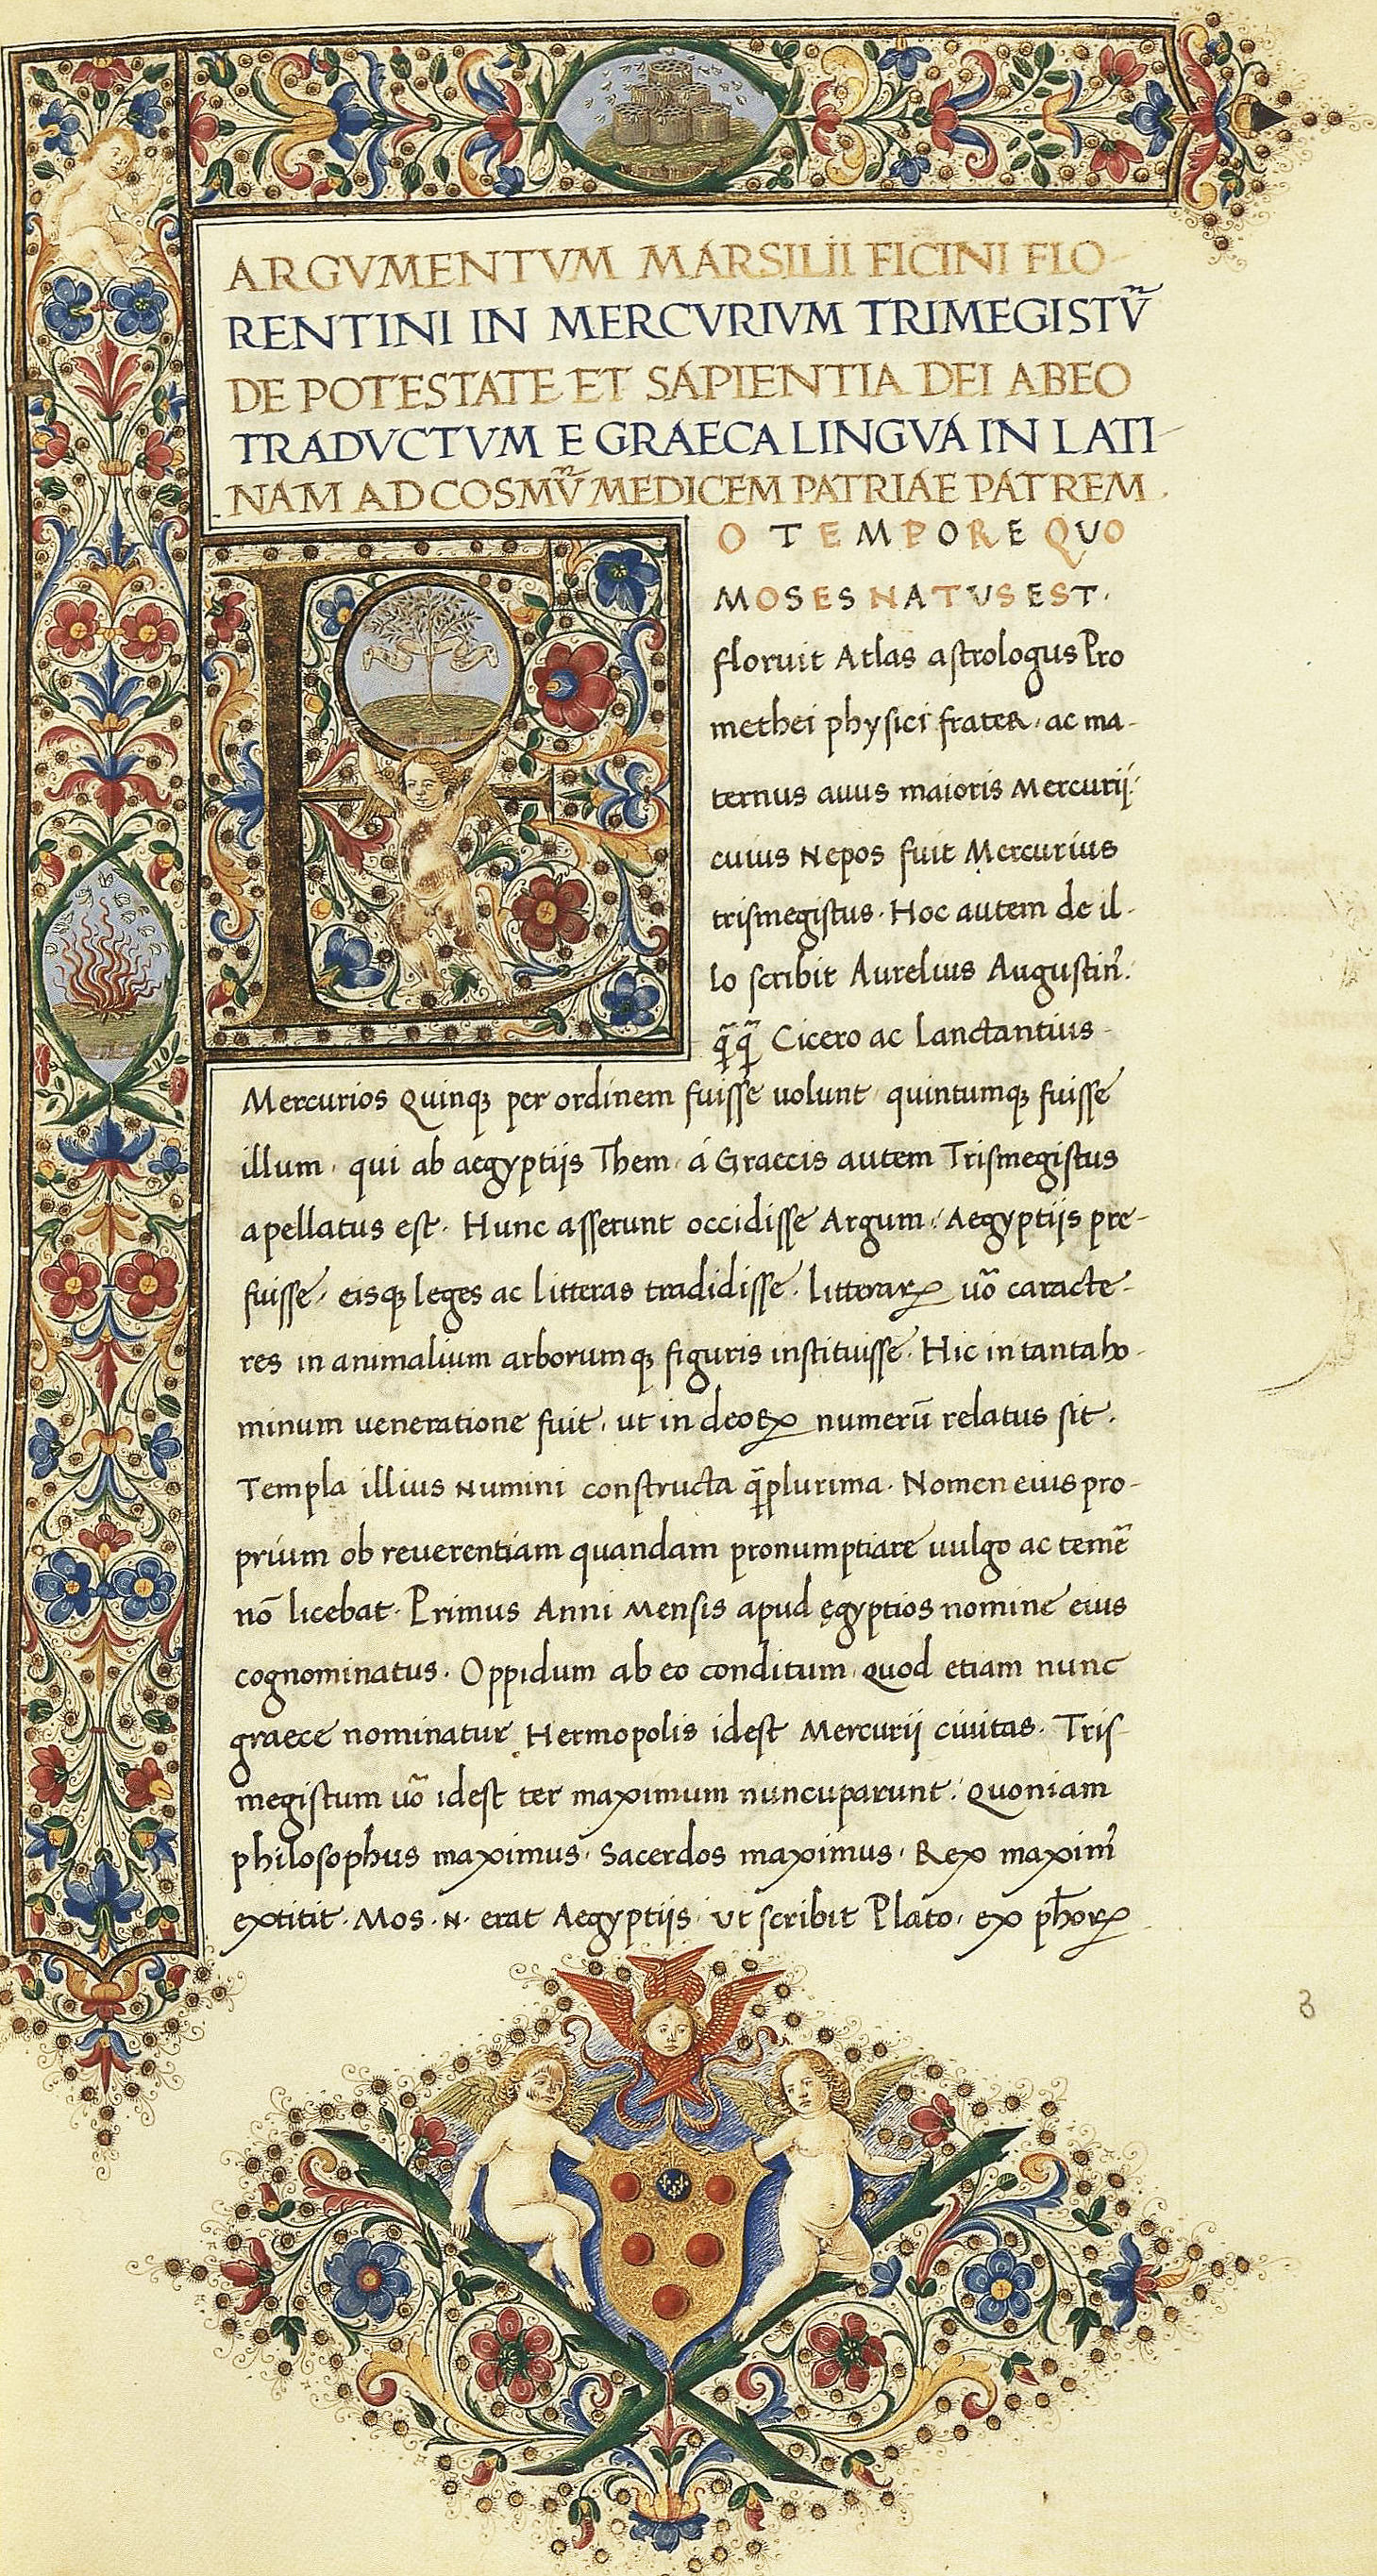 ARGVMENTVM MARSILII FICINI FLO-
RENTINI IN MERCVRIVM TRIMEGISTV̄
DE POTESTATE ET SAPIENTIA DEI ABEO
TRADVCTVM E GRAECA LINGVA IN LATI-
NAM AD COSMV̄ MEDICEM PATRIAE PATREM.
EO TEMPORE QUO
MOSES NATUS EST.
floruit Atlas astrologus Pro
methei physici frater, ac ma-
ternus auus maioris Mercurij:
cuius Nepos fuit Mercurius
trismegistus. Hoc autem de il-
lo scribit Aurelius Augustin᾿.
q̄q̄ Cicero ac Lanctantius
Mercurios Quinqꝫ per ordinem fuisse uolunt, quintumqꝫ fuisse
illum, qui ab aegyptijs Them, á Graecis autem Trismegistus
apellatus est. Hunc asserunt occidisse Argum: Aegyptijs pre-
fuisse, eisqꝫ leges ac litteras tradidisse. litterarꝝ uō caracte-
res in animalium arborumqꝫ figuris instituisse. Hic in tanta ho-
minum veneratione fuit, ut in deoꝝ numerū relatus sit.
Templa illius Numini constructa q̄plurima. Nomen eius pro-
prium ob reuerentiam quandam pronumptiare uulgo ac temē
nō licebat. Primus Anni Mensis apud ęgyptios nomine eius
cognominatus. Oppidum ab eo conditum, quod etiam nunc
graece nominatur Hermopolis idest Mercurij ciuitas. Tris
megistum uō idest ter maximum nuncuparunt: quoniam
philosophus maximus, Sacerdos maximus, Rex maxim᾿
extitit. Mos .N. erat Aegyptijs, ut scribit Plato, ex ph̄orꝝ
8